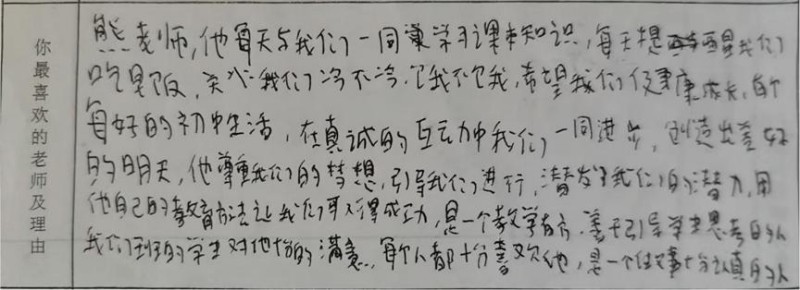 你最喜欢的老师及理由
熊老师,他每天与我们一同学习课本知识,每天提醒我们
吃早饭,关心我们冷不冷,饿不饿,希望我们健康成长,有个
每好的初中生活,在真诚的互动中我们一同进步,创造出美好
的明天,他尊重我们的梦想,引导我们进行,潜发了我们的潜力,用
他自己的教育方法让我们取得成功,是一个教学有方,善于引导学生思考的人
我们班的学生对他十分的满意,每个人都十分喜欢他,是一个做事十分认真的人